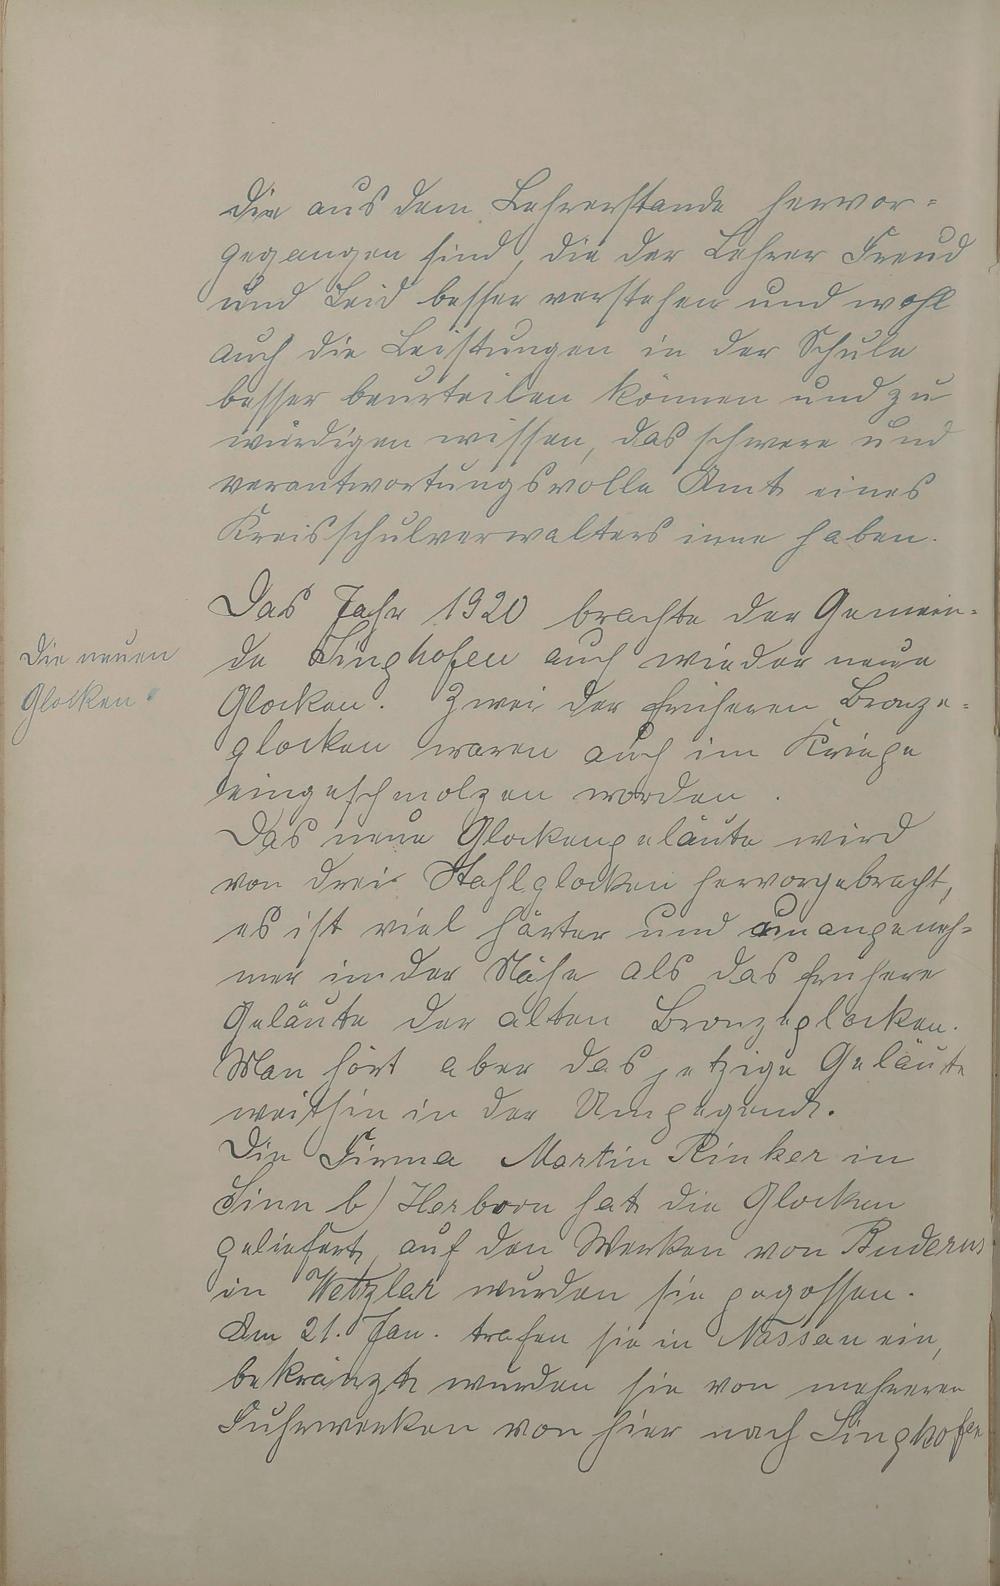 die aus dem Lehrerstande hervor=
gegangen sind, die der Lehrer Freud
und Leid besser verstehen und wohl
auch die Leistungen in der Schule
besser beurteilen können und zu
würdigen wissen, das schwere und
verantwortungsvolle Amt eines
Kreisschulverwalters inne haben.
Die neuen
Glocken.
Das Jahr 1920 brachte der Gemein=
de Singhofen auch wieder neue
Glocken. Zwei der früheren Bronze=
glocken waren auch im Kriege
eingeschmolzen worden.
Das neue Glockengeläute wird
von drei Stahlglocken hervorgebracht,
es ist viel härter und unangeneh=
mer in der Nähe als das frühere
Geläute der alten Bronzeglocken.
Man hört aber das jetzige Geläute
weithin in der Umgegend.
Die Firma Martin Rinker in
Sinn b) Herborn hat die Glocken
geliefert, auf den Werken von Buderus
in Wetzlar wurden sie gegossen.
Am 21. Jan. trafen sie in Nassau ein,
bekränzt wurden sie von mehreren
Fuhrwerken von hier nach Singhofen